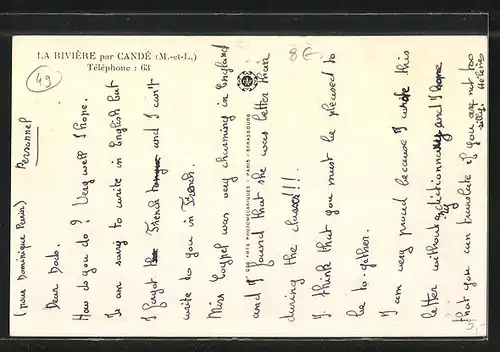 LA RIVIÈRE par CANDÉ (M.-et-L.)
Téléphone : 63
49
8 E
CIE DES ARTS PHOTOMÉCANIQUES - PARIS - STRASBOURG
(pour Dominique Paris)
Personnel
Dear Dodo.
How do you do ? Very well I hope.
I am sorry to write in English but
I forgot the French and I can't
write to you in French.
Miss Loysel was very charming in England
and I found that she was better than
during the classes!!!.
I think that you must be pleased to
be to-gether.
I am very proud because I wrote this
letter without a dictionnary and I hope
that you can translate it you are not too
silly.
5,-